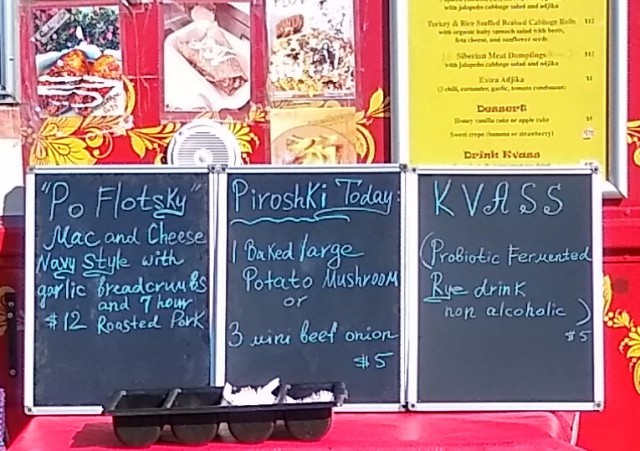 with jalapeño cabbage salad and adjika
Turkey & Rice Stuffed Braised Cabbage Rolls
with organic baby spinach salad with beets,
feta cheese, and sunflower seeds
Siberian Meat Dumplings
with jalapeño cabbage salad and adjika
Extra Adjika
Dessert
Honey vanilla cake or apple cake
Sweet crepe (banana or strawberry)
Drink Kvass
"Po Flotsky"
Mac and Cheese
Navy Style with
garlic breadcrumbs
and 7 hour
$12 Roasted Pork
Piroshki Today:
1 Baked large
Potato Mushroom
or
3 mini beef onion
$5
KVASS
(Probiotic Fermented
Rye drink
non alcoholic)
$5